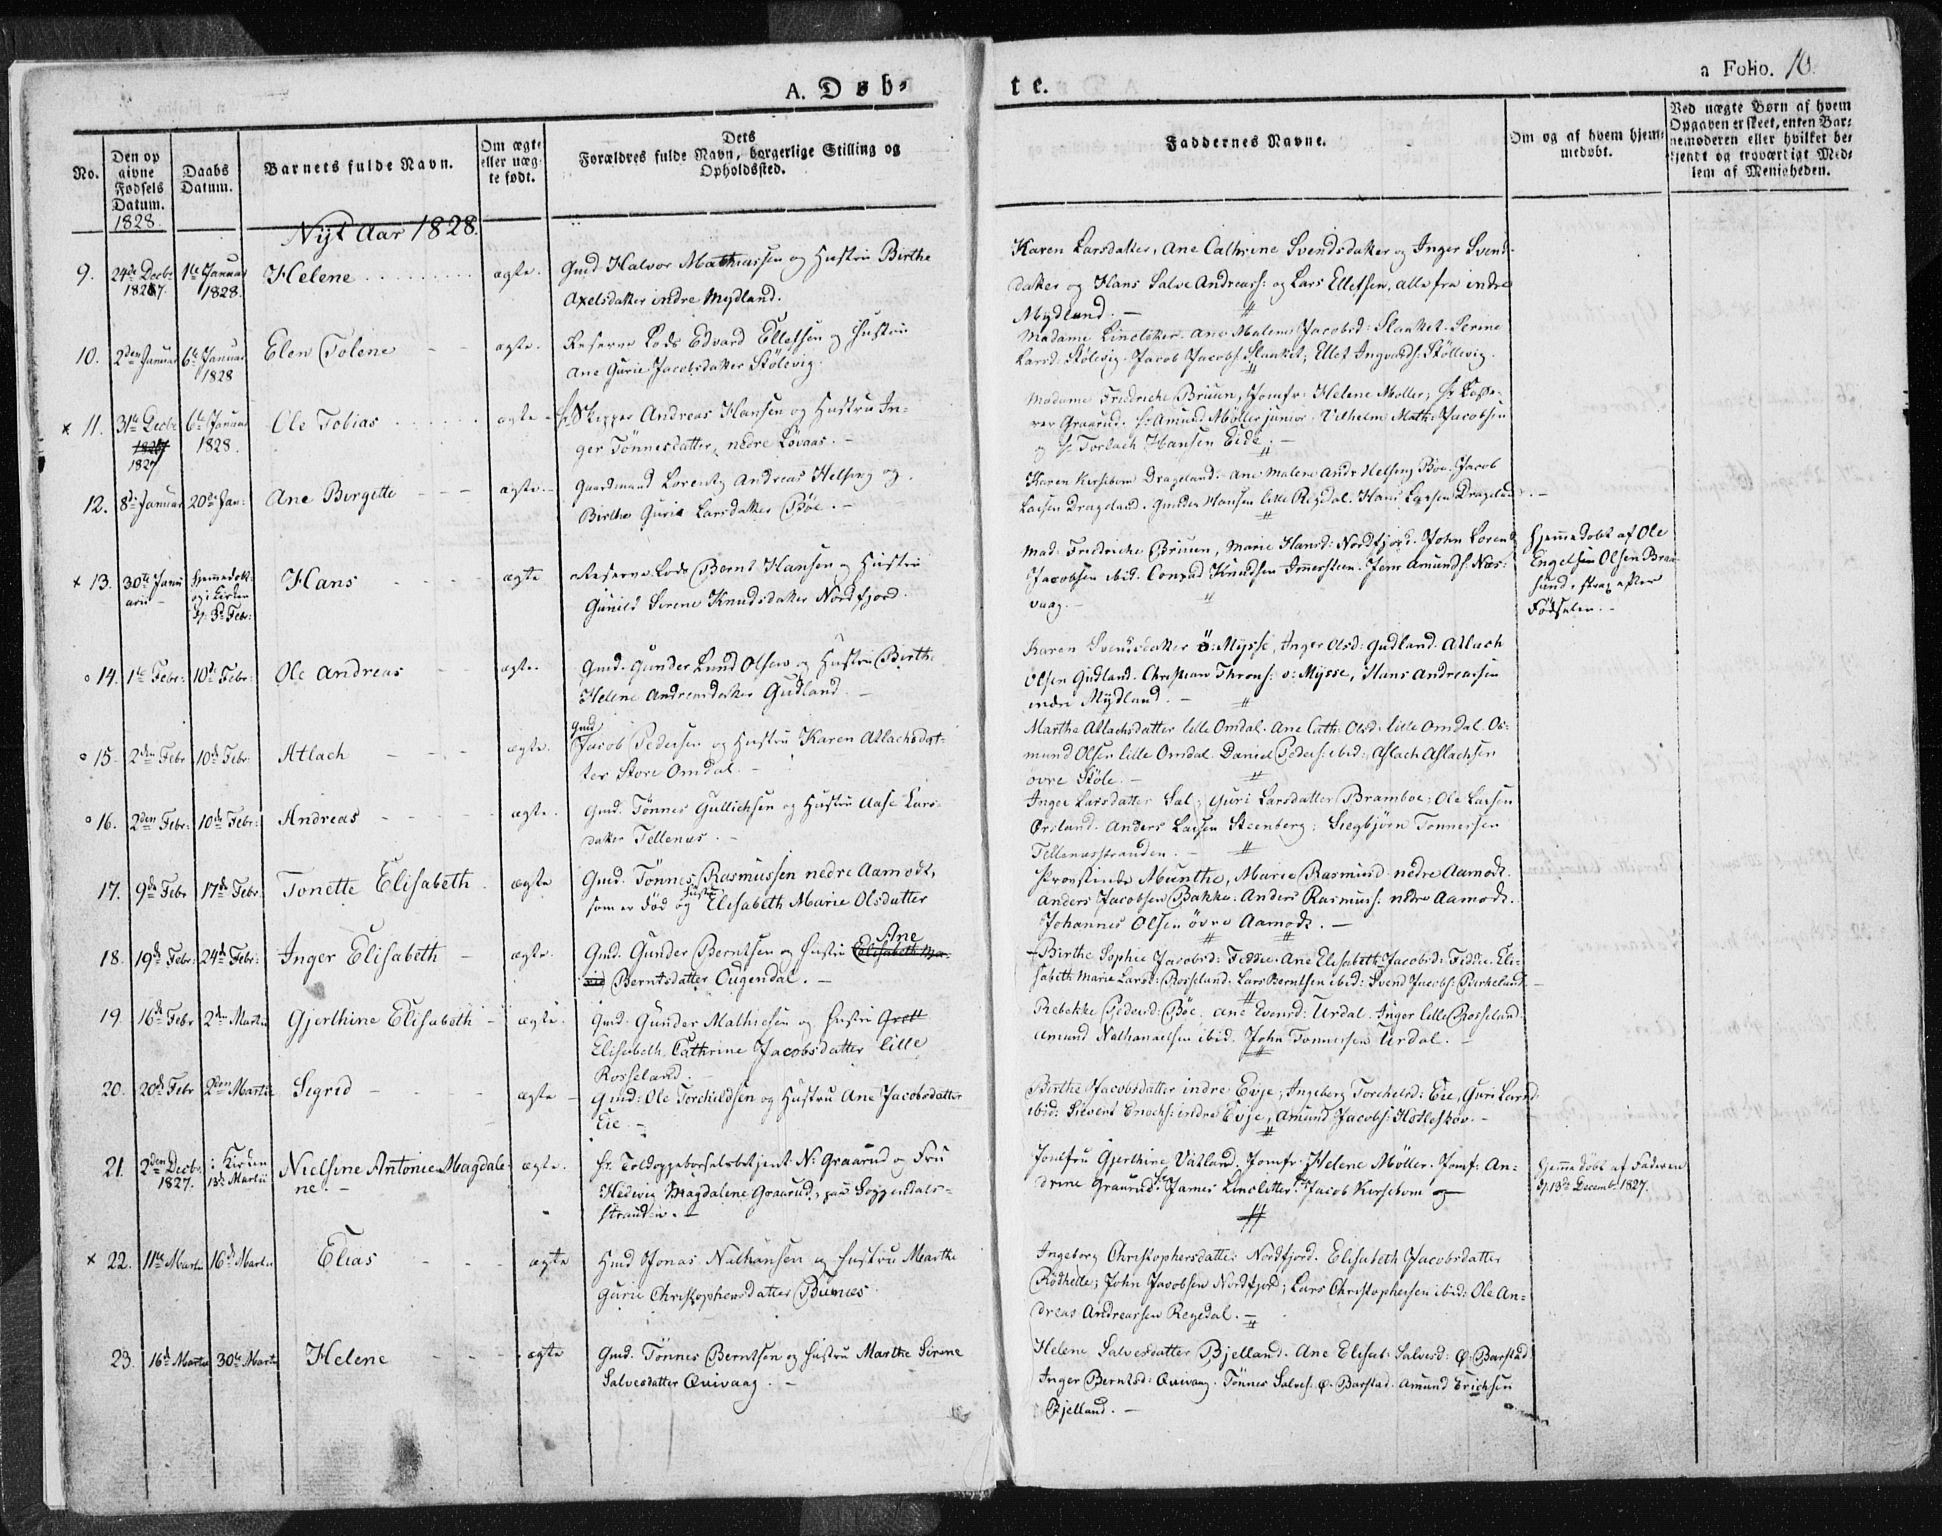 A. Døb-
te.
a Folio. 10.
No.
Den op
givne
Fødsels
Datum.
1828
Daabs
Datum.
Barnets fulde Navn.
Om ægte
eller uæg-
te født.
Dets
Forældres fulde Navn, borgerlige Stilling og
Opholdssted.
Faddernes Navne.
Om og af hvem hjem-
medøbt.
Ved uægte Børn af hvem
Opgaven er skeet, enten Bar-
nemoderen eller hvilket be-
kjendt og troværdigt Med-
lem af Menigheden.
Nyt Aar 1828.
9. 24de Decbr 1827. 1te Januar 1828. Helene ægte. Gmd Halvor Mathiassen og Hustru Birthe
Axelsdatter indre Mydland.
Karen Larsdatter, Ane Cathrine Svendsdatter og Inger Svends-
datter og Hans Salve Andreass: og Lars Ellefsen, alle fra indre
Mydland. –
10. 2den Januar 6te Januar 1828 Elen Tolene ægte. Reserve Lods Edvard Ellefsen og Hustru
Ane Gurie Jacobsdatter Stölevig.
Madame Lincleter. Ane Malene Jacobsd: Slanket. Serine
Larsd: Stölevig. Jacob Jacobs: Slanket; Ellef Ingvards: Stöllevig.
x 11. 31te Decbr 1827 6te Januar 1828. Ole Tobias ægte – hr Skipper Andreas Hansen og Hustru In-
ger Tönnesdatter, nedre Lövaas. –
Madame Fredriche Bruun, Jomfr: Helene Møller, hr
Graarud. hr: Amund Møller junior. Vilhelm Math: Jacobsen
og hr Torlach Hansen Eide. –
12. 8de Januar 20de Jan: Ane Birgitte ægte. – Gaardmand Lorentz Andreas Helseng og
Birthe Gurie Larsdatter Böe. –
Karen Kirsebom Drageland. Ane Malene Andr: Helseng Böe. Jacob
Larsen Drageland. Gunder Hansen lille Regedal. Hans Larsen Drageland. –
x 13. 30te Janu
arii – Hjemmedöbt
og i Kirken
d. 3de Febr: Hans ægte Reserve Lods Bernt Hansen og Hustru
Gunild Serene Knudsdatter Nordfjord.
Mad: Fredriche Bruun, Marie Hansd: Nordfjord. John Lorentz
Jacobsen ibid. Conrad Knudsen Immersteen. Jens Amunds: Nes-
vaag. –
Hjemmedöbt af Ole
Engelsen Olsen Brau
sund, strax efter
Födselen. –
o 14. 1te Febr: 10de Febr: Ole Andreas ægte. Gmd. Gunder Lund Olsen og Hustru Birthe
Helene Andreasdatter Gudland. –
Karen Svendsdatter ö: Mysse, Inger Olsd: Gudland. Atlach
Olsen Gudland. Christian Throns: ö: Mysse, Hans Andreassen
indre Mydland. –
o 15. 2den Febr 10de Febr: Atlach ægte. Gmd
Jacob Pedersen og Hustru Karen Atlachsdat-
ter Store Omdal. –
Marthe Atlachsdatter lille Omdal. Ane Cath: Olsd: lille Omdal. Os-
mund Olsen lille Omdal. Daniel Peders: ibid: Aslach Aslachsen
övre Stöle. –
o 16. 2den Febr: 10de Febr: Andreas ægte. Gmd. Tönnes Gullichsen og Hustru Aase Lars-
datter Tellenes. –
Inger Larsdatter Sæl; Guri Larsdatter Bramboe; Ole Larsen
Örsland. Anders Larsen Steenberg; Siegbjörn Tonnessen
Tellenesstranden. –
17. 9de Febr 17de Febr. Tonette Elisabeth ægte Gmd. Tönnes Rasmussen nedre Aamodt,
som er död og Hustru Elisabeth Marie Olsdatter
Provstinde Munthe, Marie Rasmusd: nedre Aamodt.
Anders Jacobsen Bakke: Anders Rasmuss: nedre Aamodt.
Johannes Olsen övre Aamodt. –
18. 19de Febr: 24de Febr: Inger Elisabeth – ægte. Gmd. Gunder Berntsen og Hustru Ane Elisabeth Ma-
rie Berntsdatter Ougendal. –
Birthe Sophie Jacobsd: Feddie. Ane Elisabeth Jacobsd: Feddie. Eli-
sabeth Marie Larsd: Rosseland. Lars Berntsen ibid: Svend Jacobs: Birkeland. –
19. 16de Febr 2den Martii Gjerthine Elisabeth – ægte. Gmd. Gunder Mathiesen og Hustru Grett
Elisabeth Cathrine Jacobsdatter lille
Rosseland. –
Rebekke Pedersd: Böe. Ane Evensd: Urdal. Inger lille Rosseland
Amund Nathanaelsen ibid. John Tonnessen Urdal. –
20. 20de Febr 2den Martii Segrid – ægte – Gmd: Ole Torchildsen og Hustru Ane Jacobsdatter
Eie. –
Birthe Jacobsdatter indre Evje; Ingeborg Torchelsd: Eie, Guri Larsd:
ibid: Sievert Enochs: indre Evje, Amund Jacobs: Hotleskov. –
21. 2den Decbr. 1827. i Kirken
13de Martii Nielsine Antonie Magdale-
ne. – ægte. hr. Toldoppebørselsbetjent N: Graarud og Fru
Hedevig Magdalene Graarud, paa Soggendals-
stranden. –
Jomfru Gjerthine Vatland. Jomfr: Helene Møller. Jomf: An-
drine Graarud. hr James Lincletter. hr Jacob Kirsebom og –
Hjemmedöbt af Faderen
d. 13de Decemb: 1827.
x 22. 11te Martii 16de Martii Elias ægte Hmd Jonas Nathansen og Hustru Marthe
Gurie Christophersdatter Buenes.
Ingeborg Christophersdatter Nordfjord. Elisabeth Jacobsdatter
Rödhede; John Jacobsen Nordfjord; Lars Christophersen ibid: Ole An-
dreas Andreassen Regedal. –
23. 16de Martii 30te Martii Helene ægte Gmd. Tönnes Berntsen og Hustru Marthe Sirene
Salvesdatter Qvivaag. –
Helene Salvesdatter Bjelland. Ane Elisab: Salvesd: Ö. Barstad
Inger Berntsd: Qvivaag. Tönnes Salves: Ö. Barstad. Amund Erichsen
Bjelland. –